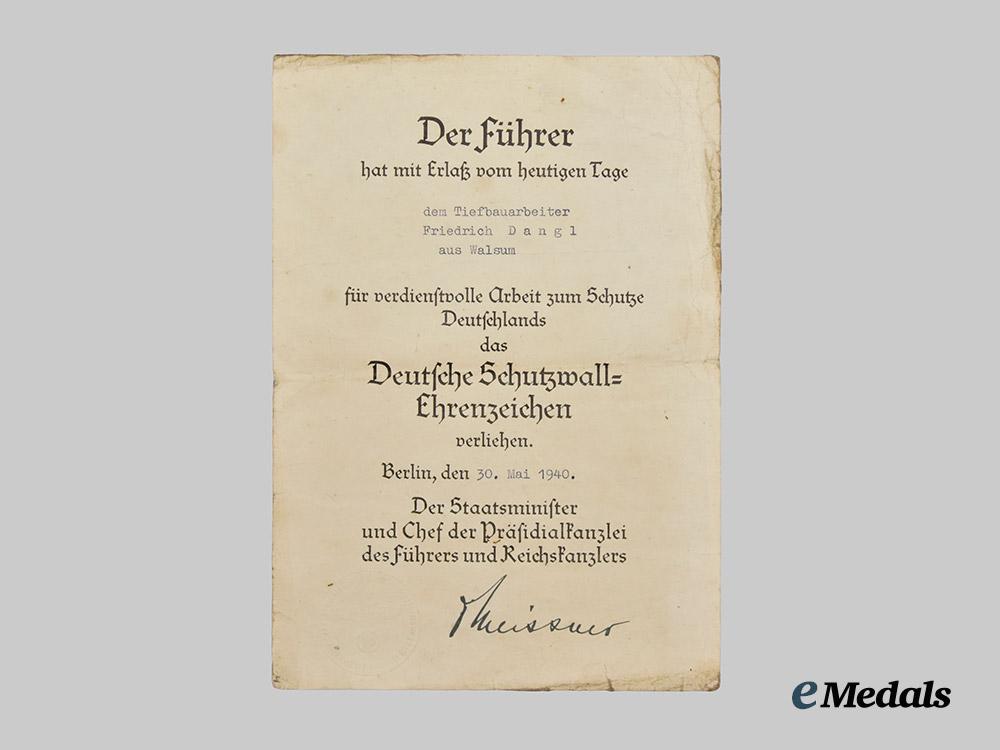 Der Führer
hat mit Erlaß vom heutigen Tage
dem Tiefbauarbeiter
Friedrich D a n g l
aus Walsum
für verdienstvolle Arbeit zum Schutze
Deutschlands
das
Deutsche Schutzwall=
Ehrenzeichen
verliehen.
Berlin, den 30. Mai 1940.
Der Staatsminister
und Chef der Präsidialkanzlei
des Führers und Reichskanzlers
Meissner
eMedals